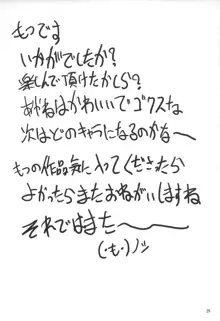 もつです
いかがでしたか?
楽しんで頂けたかしら?
あかねはかわいいでゴクスな
次はどのキャラになるのかな〜
もつの作品気に入ってくださったら
よかったらまたおねがいしますね
それではまた〜
(・も・)ノシ